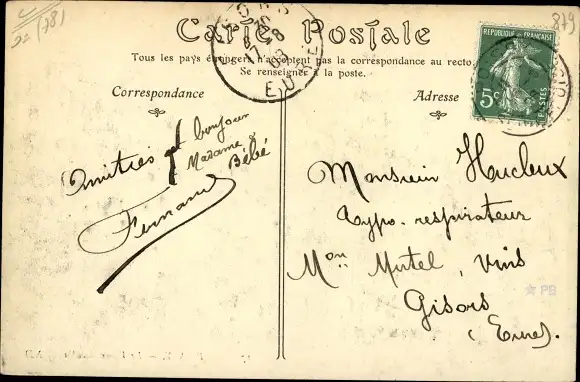 (181)
879
Carte Postale
Tous les pays étrangers n'acceptent pas la correspondance au recto.
Se renseigner à la poste.
Correspondance
Amitiés bonjour
Madame &
Bébé
Fernand
Adresse
REPUBLIQUE FRANÇAISE
5c
POSTES
GISORS
17-8
08
EURE
Monsieur
Typo. respirateur
Mon Mutel, Vins
Gisors
(Eure).
PB